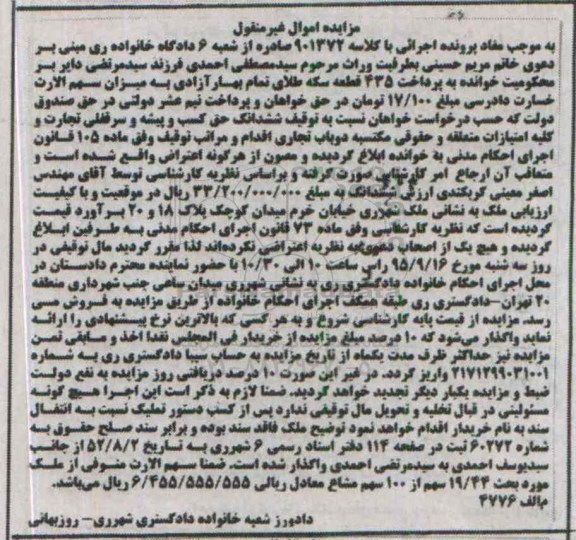 مزایده اموال غیرمنقول
به موجب مفاد پرونده اجرائی با کلاسه ۹۰۱۳۷۲ صادره از شعبه ۶ دادگاه خانواده ری مبنی بر
دعوی خانم مریم حسینی بطرفیت وراث مرحوم سیدمصطفی احمدی فرزند سیدمرتضی دایر بر
محکومیت خوانده به پرداخت ۴۳۵ قطعه سکه طلای تمام بهارآزادی به میزان سهم الارث
خسارت دادرسی مبلغ ۱۷/۱۰۰ تومان در حق خواهان و پرداخت نیم عشر دولتی در حق صندوق
دولت که حسب درخواست خواهان نسبت به توقیف ششدانگ حق کسب و پیشه و سرقفلی تجارت و
کلیه امتیازات متعلقه و حقوقی مکتسبه دوباب تجاری اقدام و مراتب توقیف وفق ماده ۱۰۵ قانون
اجرای احکام مدنی به خوانده ابلاغ گردیده و مصون از هرگونه اعتراض واقع شده است و
متعاقب آن ارجاع امر کارشناسی صورت گرفته و براساس نظریه کارشناسی توسط آقای مهندس
اصغر معینی کربکندی ارزش ششدانگ به مبلغ ۳۳/۲۰۰/۰۰۰/۰۰۰ ریال در موقعیت و با کیفیت
ارزیابی ملک به نشانی ملک شهرری خیابان خرم میدان کوچک پلاک ۱۸ و ۲۰ برآورد قیمت
گردیده است که نظریه کارشناسی وفق ماده ۷۳ قانون اجرای احکام مدنی به طرفین ابلاغ
گردیده و هیچ یک از اصحاب دعوی به نظریه اعتراضی نکرده‌اند لذا مقرر گردید مال توقیفی در
روز سه شنبه مورخ ۹۵/۹/۱۶ راس ساعت ۱۰ الی ۱۰/۳۰ با حضور نماینده محترم دادستان در
محل اجرای احکام خانواده دادگستری ری به نشانی شهرری میدان سامی جنب شهرداری منطقه
۲۰ تهران–دادگستری ری طبقه همکف اجرای احکام خانواده از طریق مزایده به فروش می
رسد. مزایده از قیمت پایه کارشناسی شروع و به هر کسی که بالاترین نرخ پیشنهادی را ارائه
نماید واگذار می‌شود که ۱۰ درصد مبلغ مزایده از خریدار فی المجلس نقدا اخذ و مابقی ثمن
مزایده نیز حداکثر ظرف مدت یکماه از تاریخ مزایده به حساب سیبا دادگستری ری به شماره
۲۱۷۱۲۹۹۰۳۱۰۰۱ واریز گردد. در غیر این صورت ۱۰ درصد دریافتی روز مزایده به نفع دولت
ضبط و مزایده یکبار دیگر تجدید خواهد گردید. ضمنا لازم به ذکر است این اجرا هیچ گونه
مسئولیتی در قبال تخلیه و تحویل مال توقیفی ندارد پس از کسب دستور تملیک نسبت به انتقال
سند به نام خریدار اقدام خواهد نمود توضیح ملک فاقد سند بوده و برابر سند صلح حقوق به
شماره ۶۰۲۷۲ ثبت در صفحه ۱۱۴ دفتر اسناد رسمی ۶ شهرری به تاریخ ۵۲/۸/۲ از جانب
سیدیوسف احمدی به سیدمرتضی احمدی واگذار شده است. ضمنا سهم الارث متوفی از ملک
مورد بحث ۱۹/۴۴ سهم از ۱۰۰ سهم مشاع معادل ریالی ۶/۴۵۵/۵۵۵/۵۵۵ ریال می‌باشد.
م‌الف ۴۷۷۶
دادورز شعبه خانواده دادگستری شهرری– روزبهانی